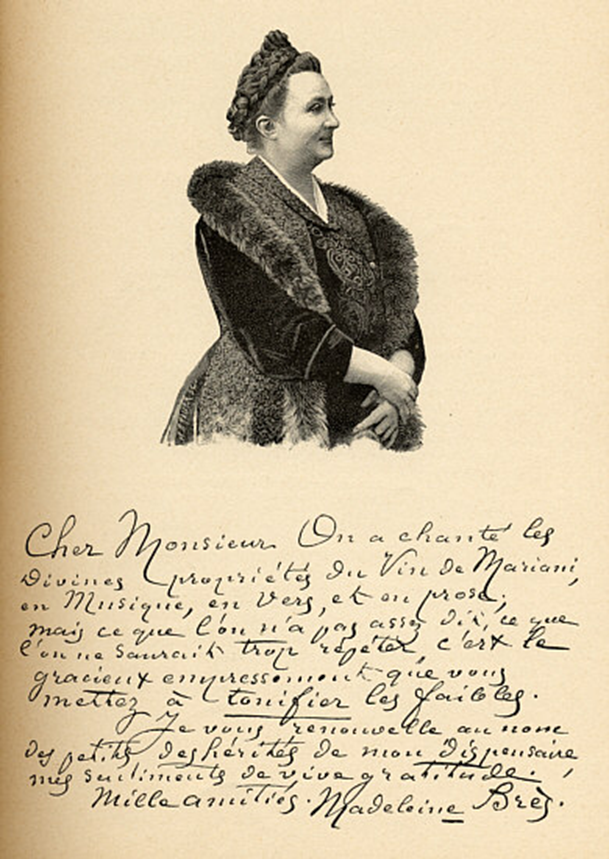 Cher Monsieur On a chanté les
Divines propriétés du Vin de Mariani,
en Musique, en Vers, et en prose;
mais ce que l'on n'a pas assez dit, ce que
l'on ne saurait trop répéter c'est le
gracieux empressement que vous
mettez à tonifier les faibles.
Je vous renouvelle au nom
des petits deshérités de mon dispensaire,
mes sentiments de vive gratitude.
Mille amitiés. Madeleine Brès.